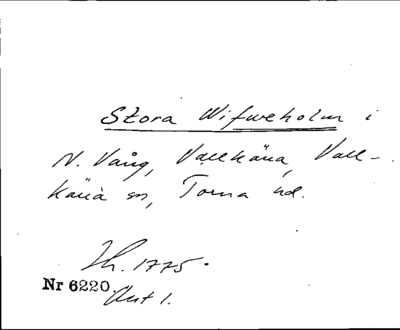 Stora Wifweholm i
N. Vång, Vallkärra, Vall-
kärra sn, Torna hd.
1775.
Nr 6220.
Akt 1.